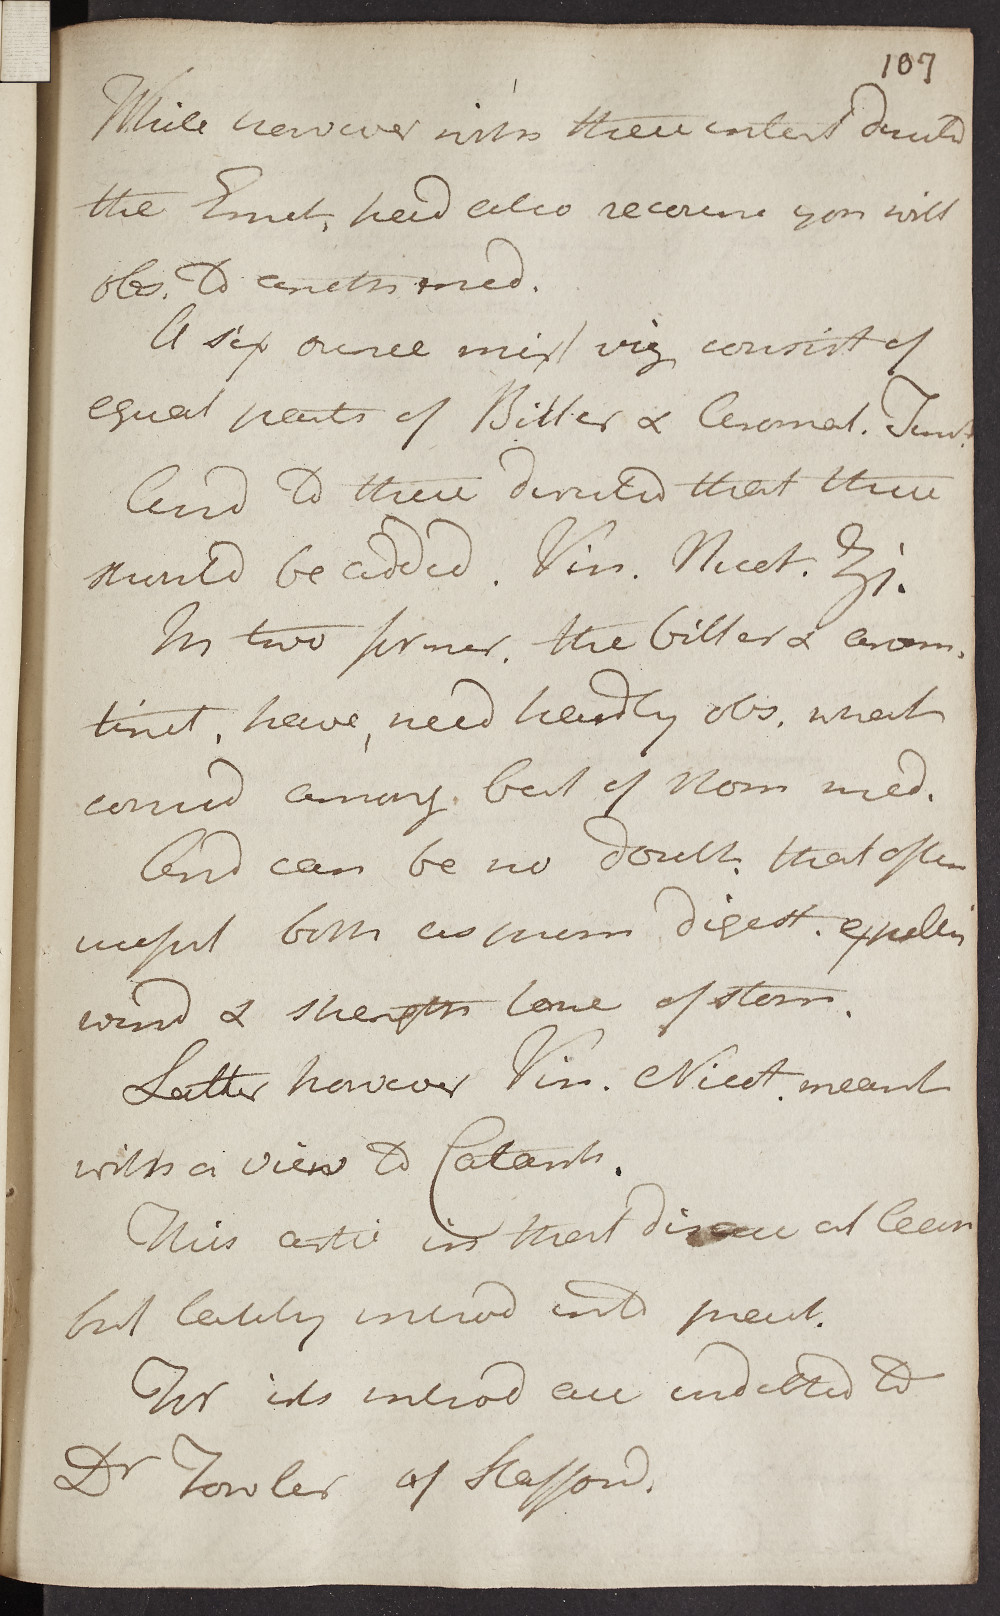 107
While however with these intent directed
the Emet. had also recourse you will
obs. to another med.
A six ounce mixt viz consist of
equal parts of Bitter & Aromat. Tinct
And to these directed that there
should be added. Vin. Nicot. ʒj.
In two former. the bitter & arom.
tinct, have, need hardly obs. what
consid among best of Stom med.
And can be no doubt. that often
useful both as prom digest. expellin
wind & strength tone of stom.
Latter however Vin. Nicot. meant
with a view to Catarrh.
This artic in that disease at least
but lately introd into pract.
For its introd are indebted to
Dr Fowler of Stafford.